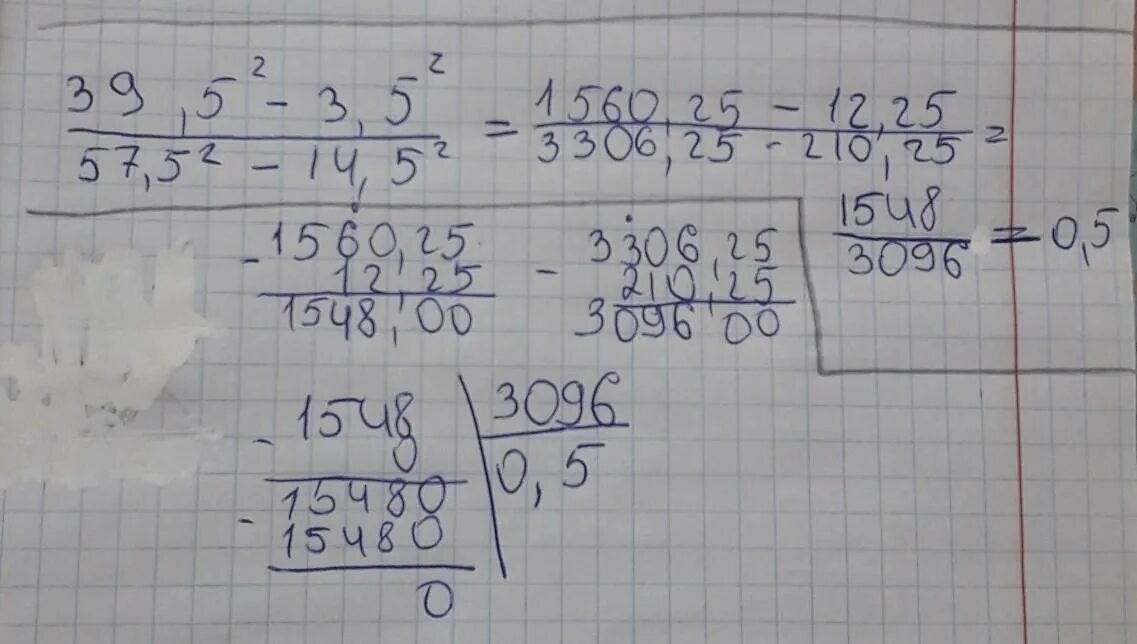 39,5² - 3,5² / 57,5² - 14,5² = 1560,25 - 12,25 / 3306,25 - 210,25 =
1548 / 3096 = 0,5
- 1560,25
12,25
1548,00
- 3306,25
210,25
3096,00
- 1548 | 3096
0 | 0,5
- 15480
15480
0